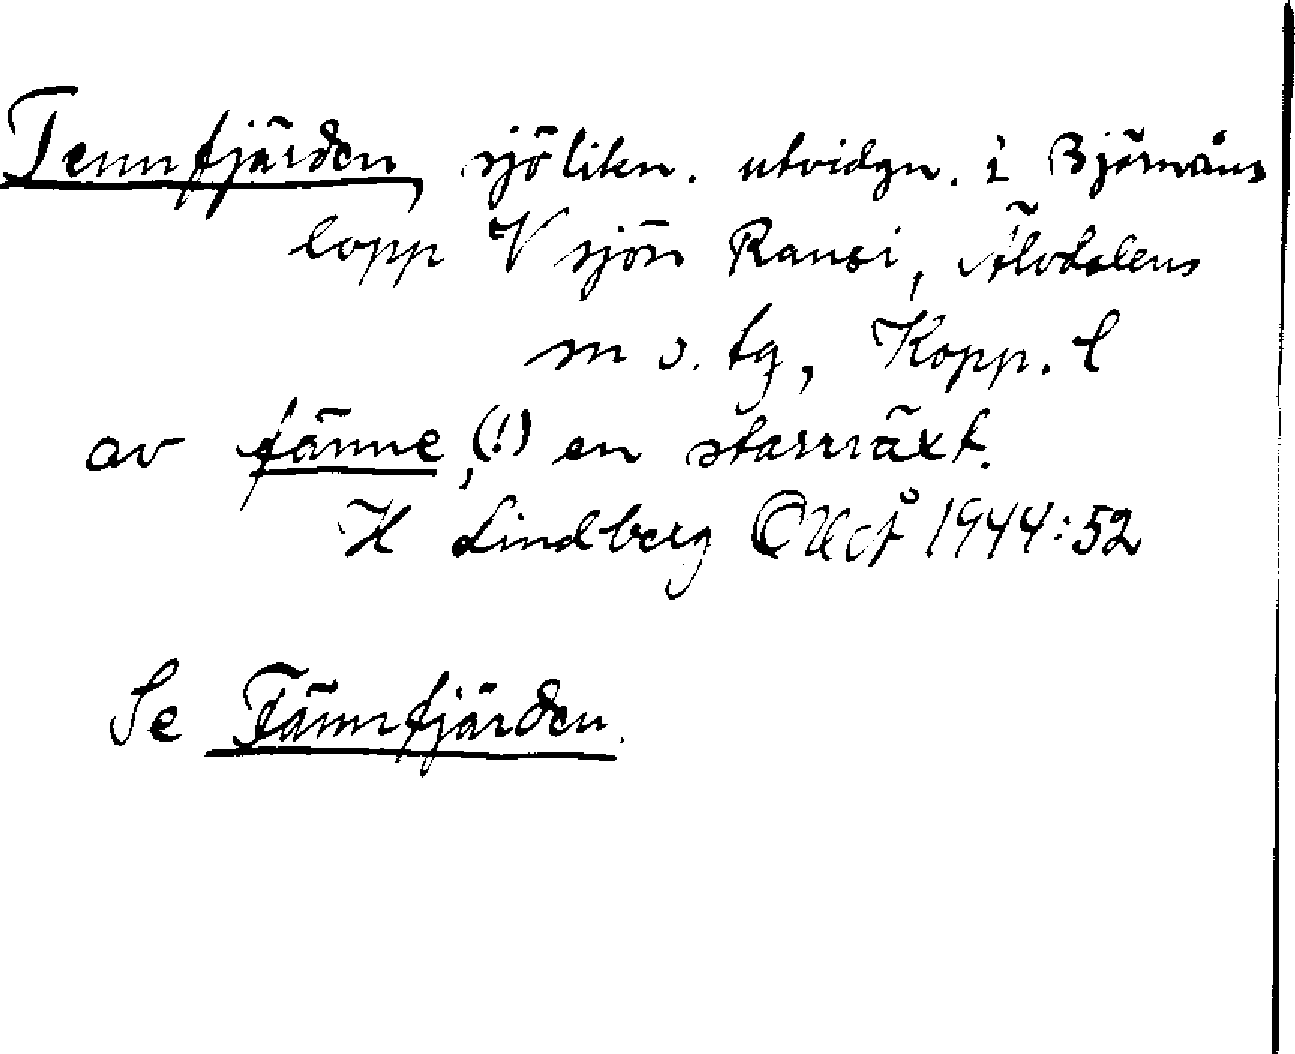 Tennfjärden, sjölikn. utvidgn. i Björnåns
lopp V sjön Ransi, Älvdalens
m o. tg, Kopp. l
av tänne,(!) en starrväxt.
H Lindberg 1944:52
Se Tännfjärden.